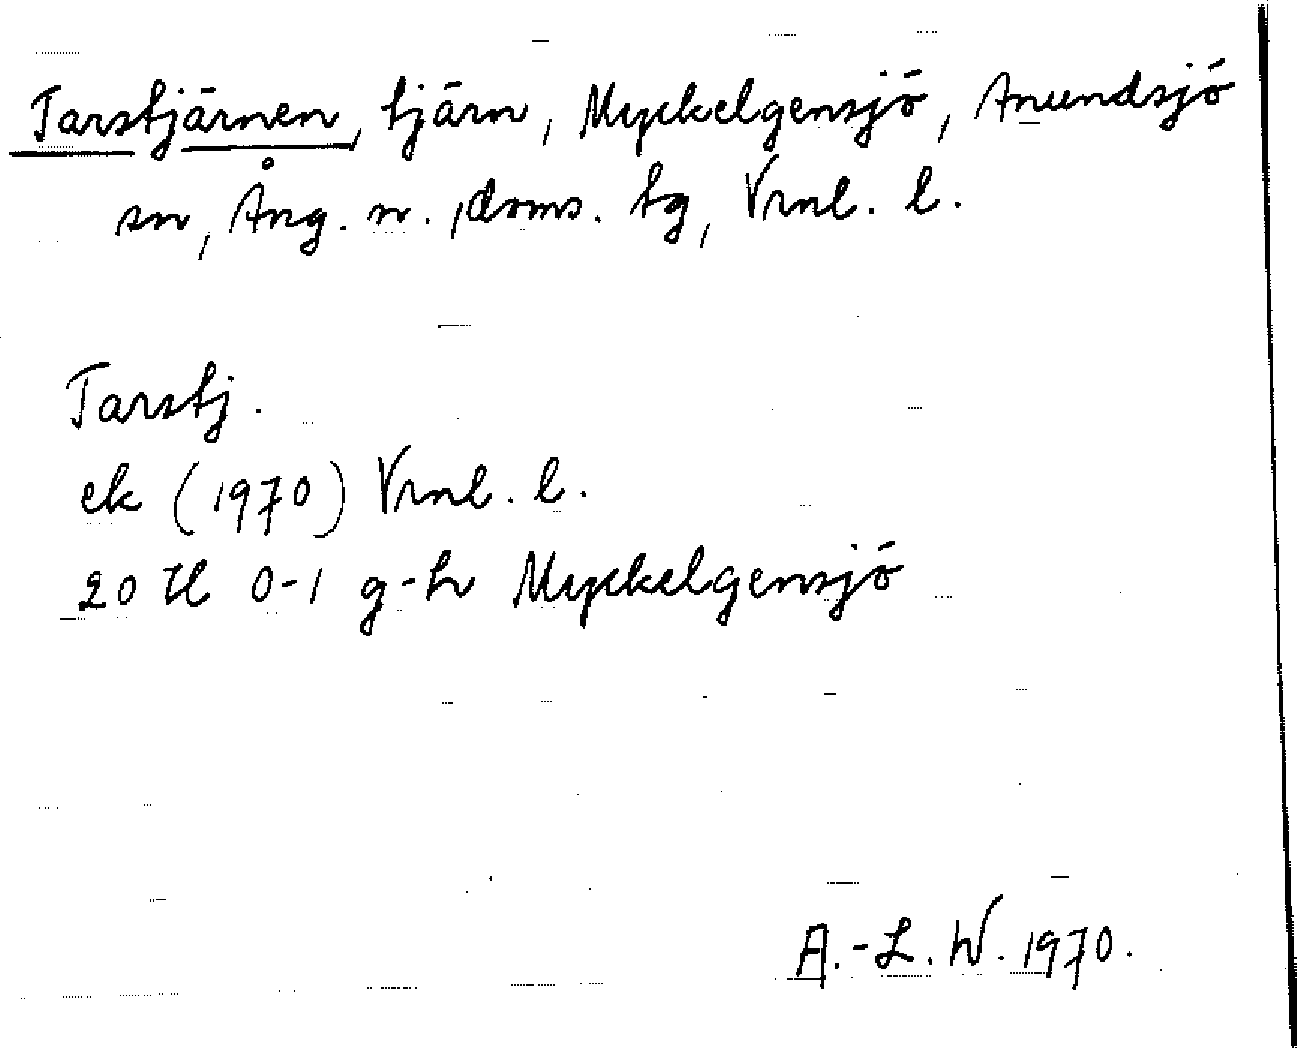 Tarstjärnen, tjärn, Myckelgensjö, Anundsjö
sn, Ång. n., doms. tg, Vrnl. l.
Tarstj.
ek (1970) Vrnl. l.
20 H 0-1 g-h Myckelgensjö
A.-L. W. 1970.